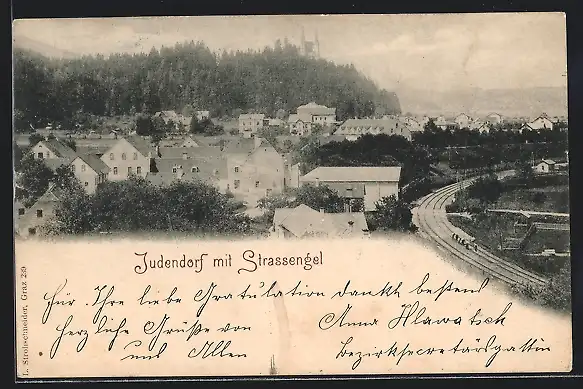 Judendorf mit Strassengel
Für Ihre liebe Gratulation dankt bestens
herzliche Grüße von Anna Hlawatsch
uns Allen Bezirkssecretärsgattin
L. Strohschneider, Graz 259